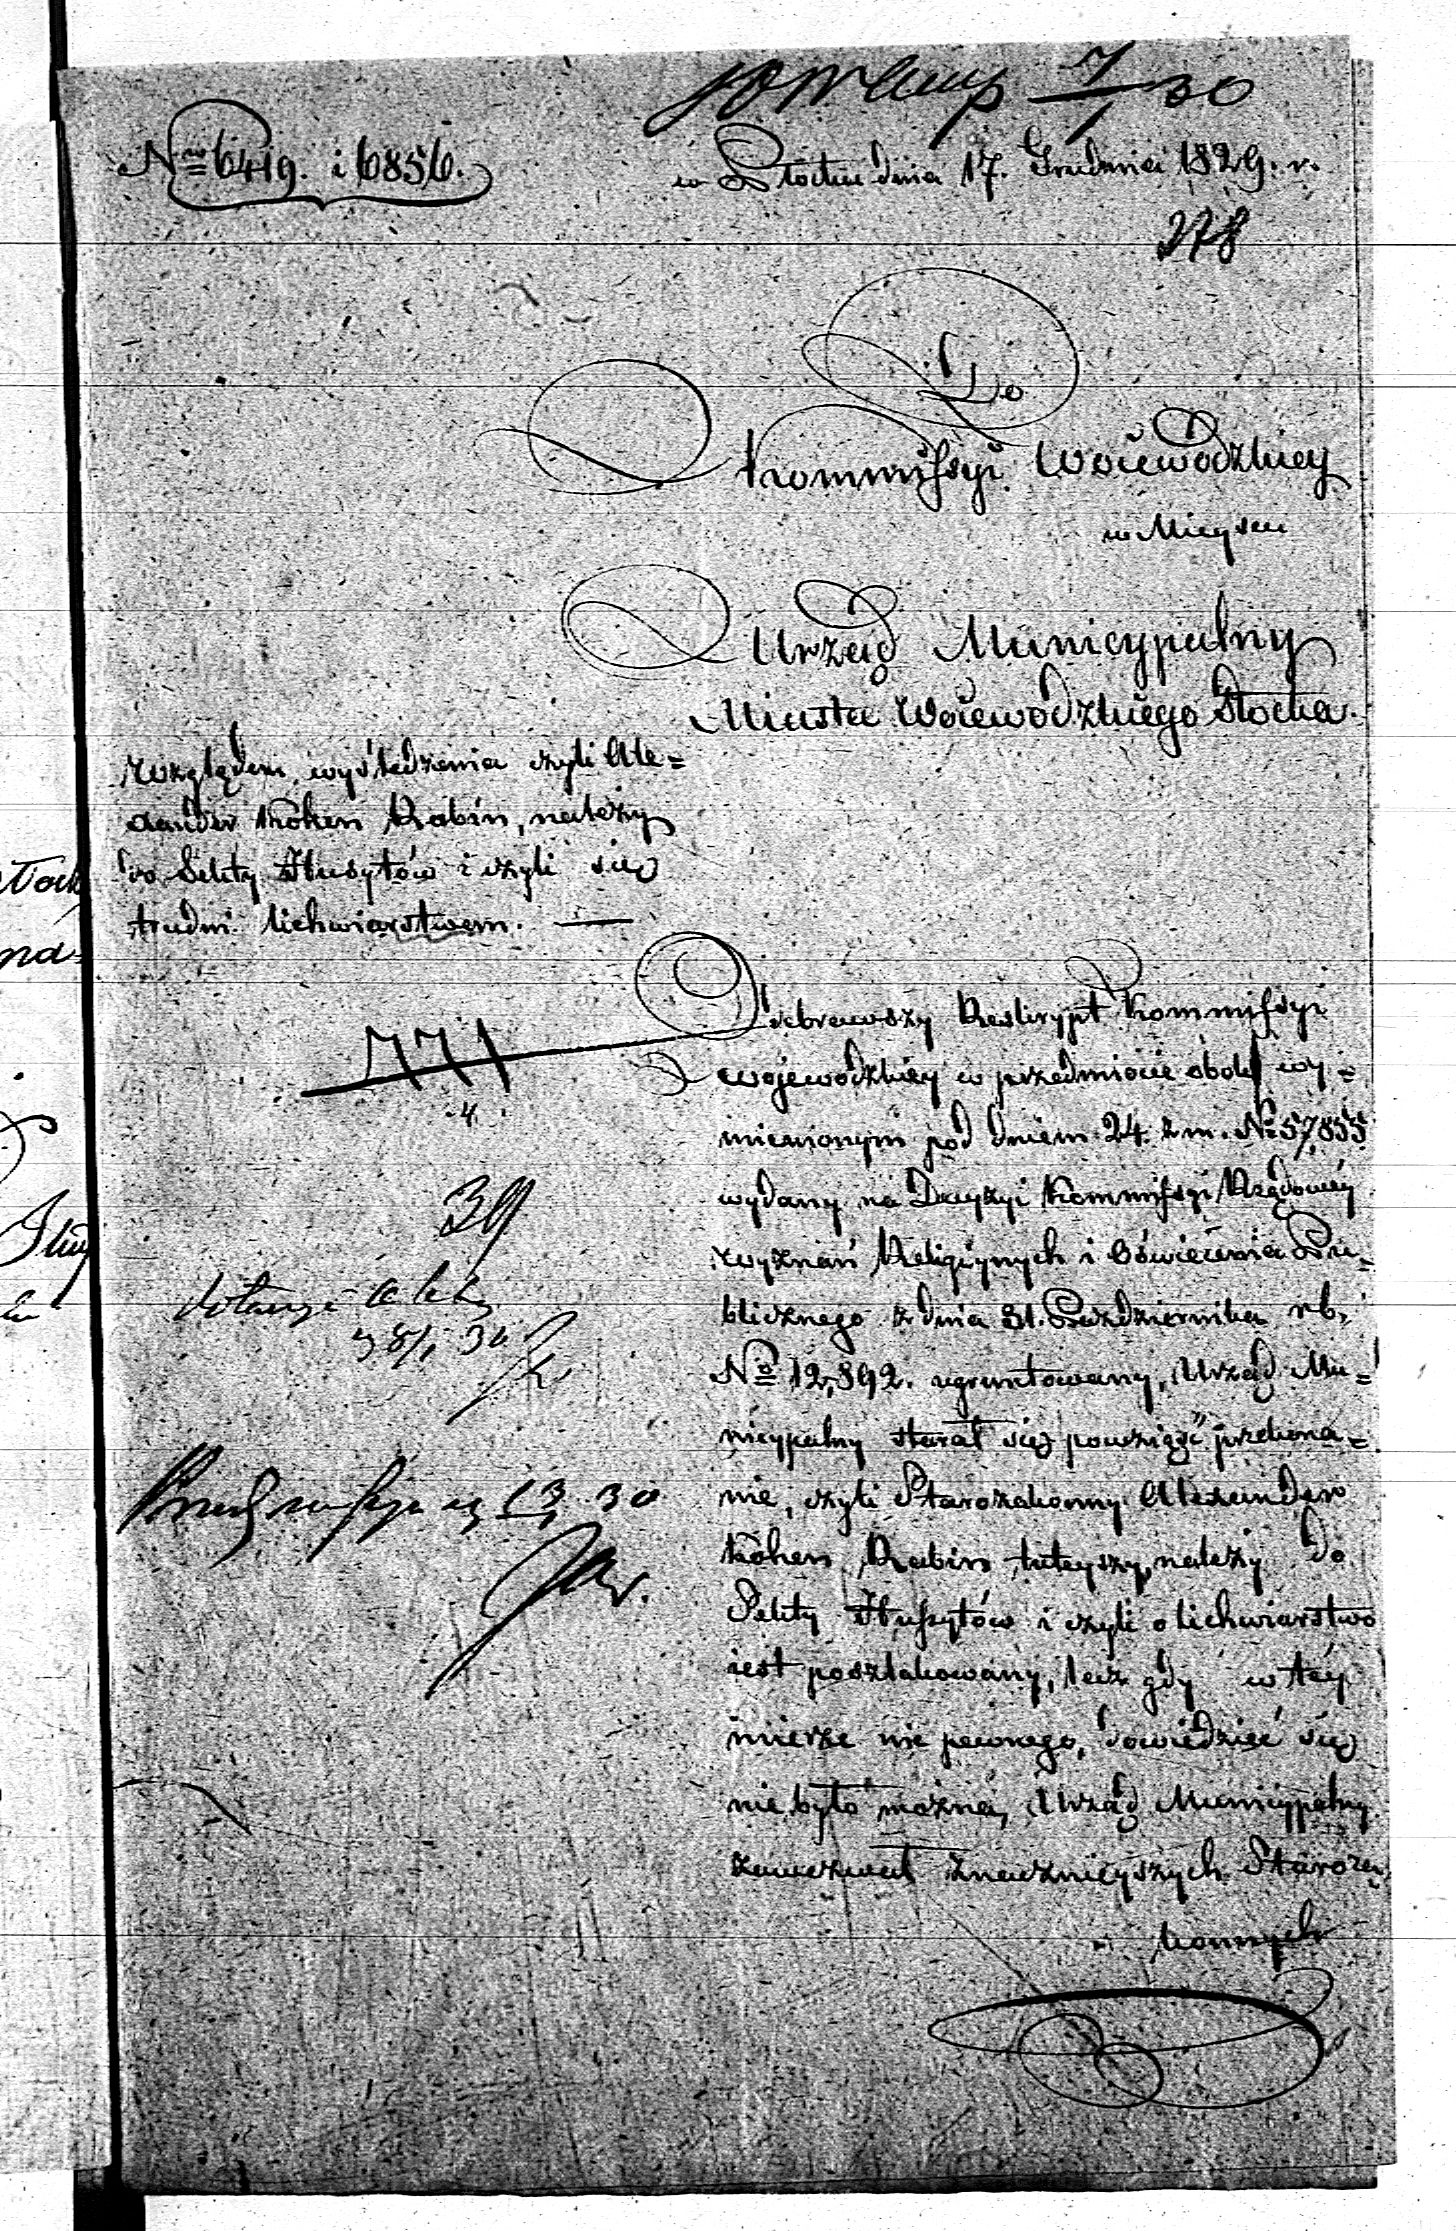 7/1 30
Nro 6419. i 6856.
w Płocku dnia 17. Grudnia 1829. r.
278
Do
Kommissyi Woiewodzkiey
w Mieyscu
Urząd Municypalny
Miasta Woiewodzkiego Płocka.
Względem wyśledzenia czyli Ale=
xander Kohen Rabin, należy
do Sekty Husytów i czyli się
trudni lichwiarstwem. —
Odebrawszy Reskrypt Kommissyi
Wojewodzkiey w przedmiocie obok wy=
mienionym pod dniem 24. z. m. No 57,855
wydany na Decyzyi Kommissyi Rządowéy
Wyznań Religiynych i Oświecenia Pu=
blicznego z dnia 31. Października rb.
No 12,892. ugruntowany, Urząd Mu=
nicypalny starał się powziąść przekona=
nie, czyli Starozakonny Alexander
Kohen Rabin tuteyszy, należy do
Sekty Hussytów i czyli o lichwiarstwo
iest poszlakowany, lecz gdy w téy
mierze nic pewnego, dowiedzieć się
nie było można, Urząd Municypalny
zawezwał znacznieyszych Staroza=
konnych
771
4
39
30